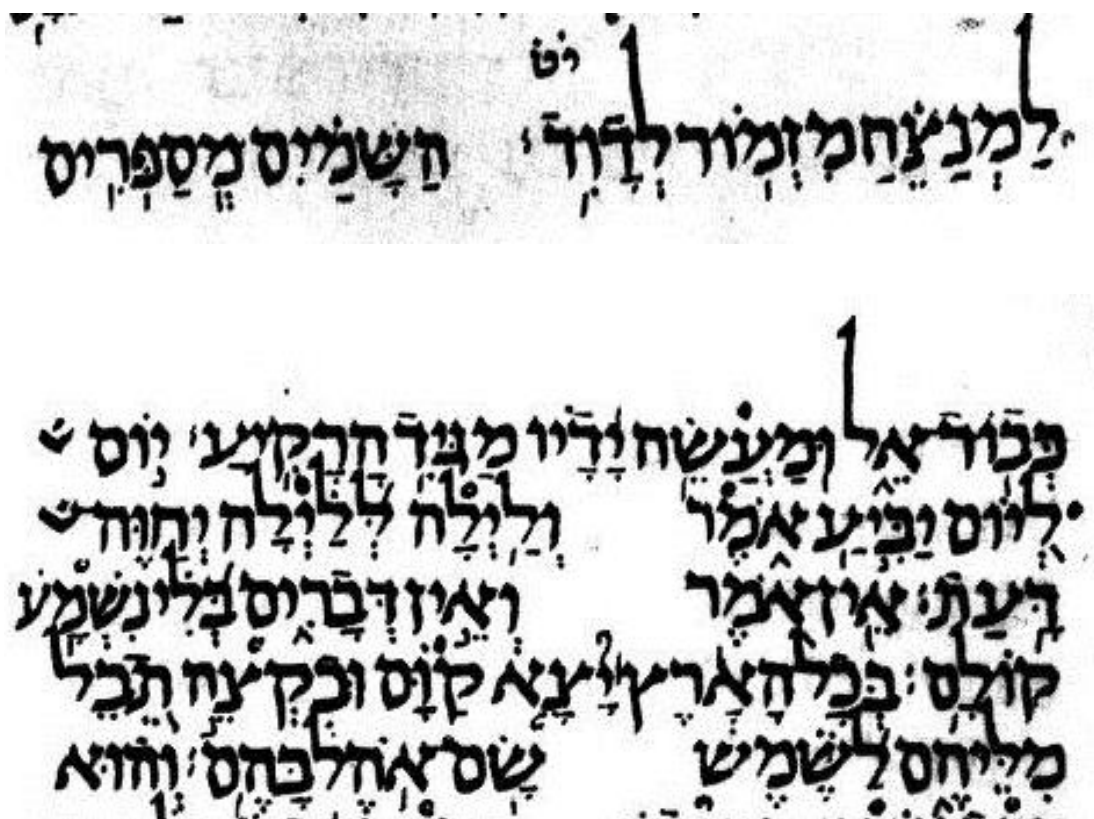 יט
לַמְנַצֵּחַ מִזְמוֹר לְדָוִד׃ הַשָּׁמַיִם מְסַפְּרִים
כְּבוֹד־אֵל וּמַעֲשֵׂה יָדָיו מַגִּיד הָרָקִיעַ׃ יוֹם
לְיוֹם יַבִּיעַ אֹמֶר וְלַיְלָה לְּלַיְלָה יְחַוֶּה־
דָּעַת׃ אֵין אֹמֶר וְאֵין דְּבָרִים בְּלִי נִשְׁמָע
קוֹלָם׃ בְּכָל־הָאָרֶץ יָצָא קַוָּם וּבִקְצֵה תֵבֵל
מִלֵּיהֶם לַשֶּׁמֶשׁ שָׂם־אֹהֶל בָּהֶם׃ וְהוּא